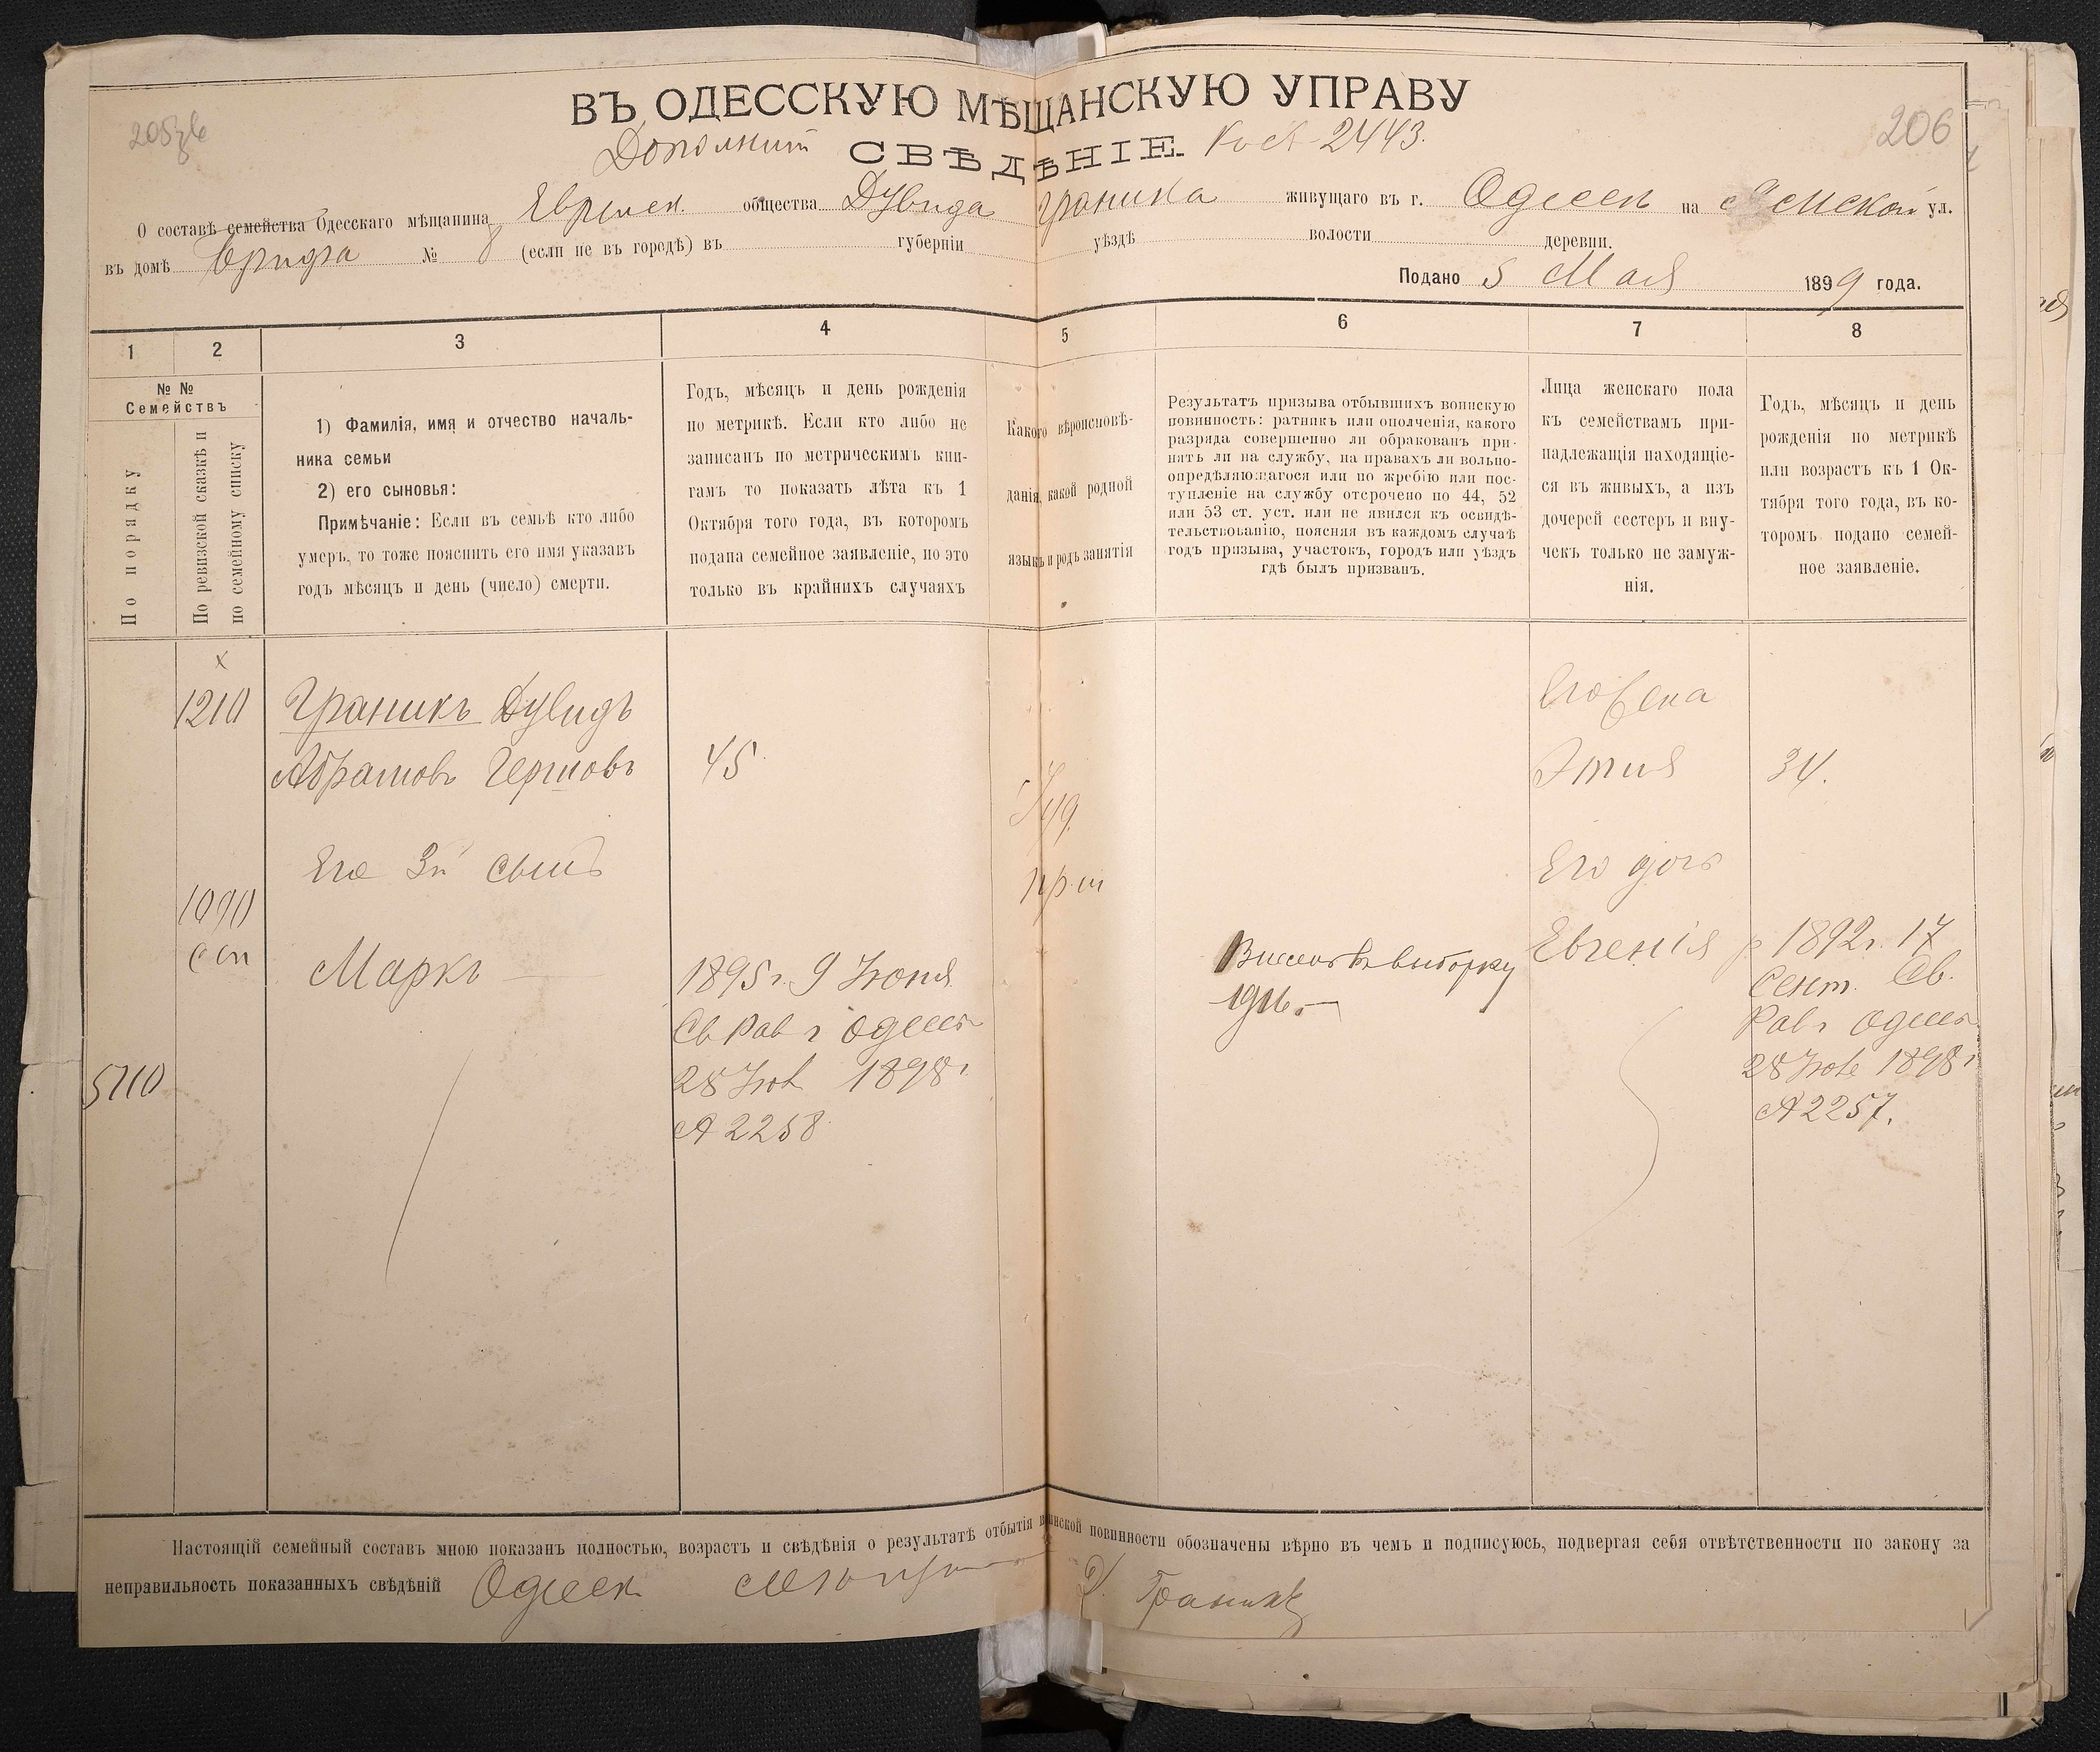 205
ВЪ ОДЕССКУЮ МѢЩАНСКУЮ УПРАВУ
206
Дополнит СВѢДѢНІЕ. 2443.
О составѣ семейства Одесскаго мѣщанина Евреиск. общества Дувида Граника живущаго въ г. Одессѣ на ул.
въ домѣ № 8 (если не въ городѣ) въ губерніи уѣздѣ волости деревни.
Подано 5 Мая 1899 года.
1
2
3
4
5
6
7
8
№ №
Семействъ
По порядку
По ревизской сказкѣ и
по семейному списку
1) Фамилія, имя и отчество началь-
ника семьи
2) его сыновья:
Примѣчаніе: Если въ семьѣ кто либо
умеръ, то тоже пояснить его имя указавъ
годъ мѣсяцъ и день (число) смерти.
Годъ, мѣсяцъ и день рожденія
по метрикѣ. Если кто либо не
записанъ по метрическимъ кни-
гамъ то показать лѣта къ 1
Октября того года, въ которомъ
подана семейное заявленіе, но это
только въ крайнихъ случаяхъ
Какого вѣроисповѣ-
данія, какой родной
языкъ и родъ занятія
Результатъ призыва отбывшихъ воинскую
повинность: ратникъ или ополченія, какого
разряда совершенно ли обракованъ при-
нятъ ли на службу, на правахъ ли вольно-
опредѣляющагося или по жребію или пос-
тупленіе на службу отсрочено по 44, 52
или 53 ст. уст. или не явился къ освидѣ-
тельствованію, поясняя въ каждомъ случаѣ
годъ призыва, участокъ, городъ или уѣздъ
гдѣ былъ призванъ.
Лица женскаго пола
къ семействамъ при-
надлежащія находящіе-
ся въ живыхъ, а изъ
дочерей сестеръ и вну-
чекъ только не замуж-
нія.
Годъ, мѣсяцъ и день
рожденія по метрикѣ
или возрастъ къ 1 Ок-
тября того года, въ ко-
торомъ подано семей-
ное заявленіе.
х
1210
Граникъ Дувидъ
Абрамовъ Гершовъ
45
Іуд.
Его жена
Этля
34.
Его 3й сынъ
1090
сп
Маркъ
1895 г. 9 Іюня
Св Рав г Одессы
28 Іюля 1898 г
№ 2258
Внесенъ въ выборку
1916.
Его дочь
Евгенія
р 1892 г. 17
Сент. Св.
Рав г Одессы
28 Іюля 1898 г
№ 2257.
5710
Настоящій семейный составъ мною показанъ полностью, возрастъ и свѣдѣнія о результатѣ отбытія воинской повинности обозначены вѣрно въ чемъ и подписуюсь, подвергая себя отвѣтственности по закону за
неправильность показанныхъ свѣдѣній Одесск. мѣщанинъ Д. Граникъ